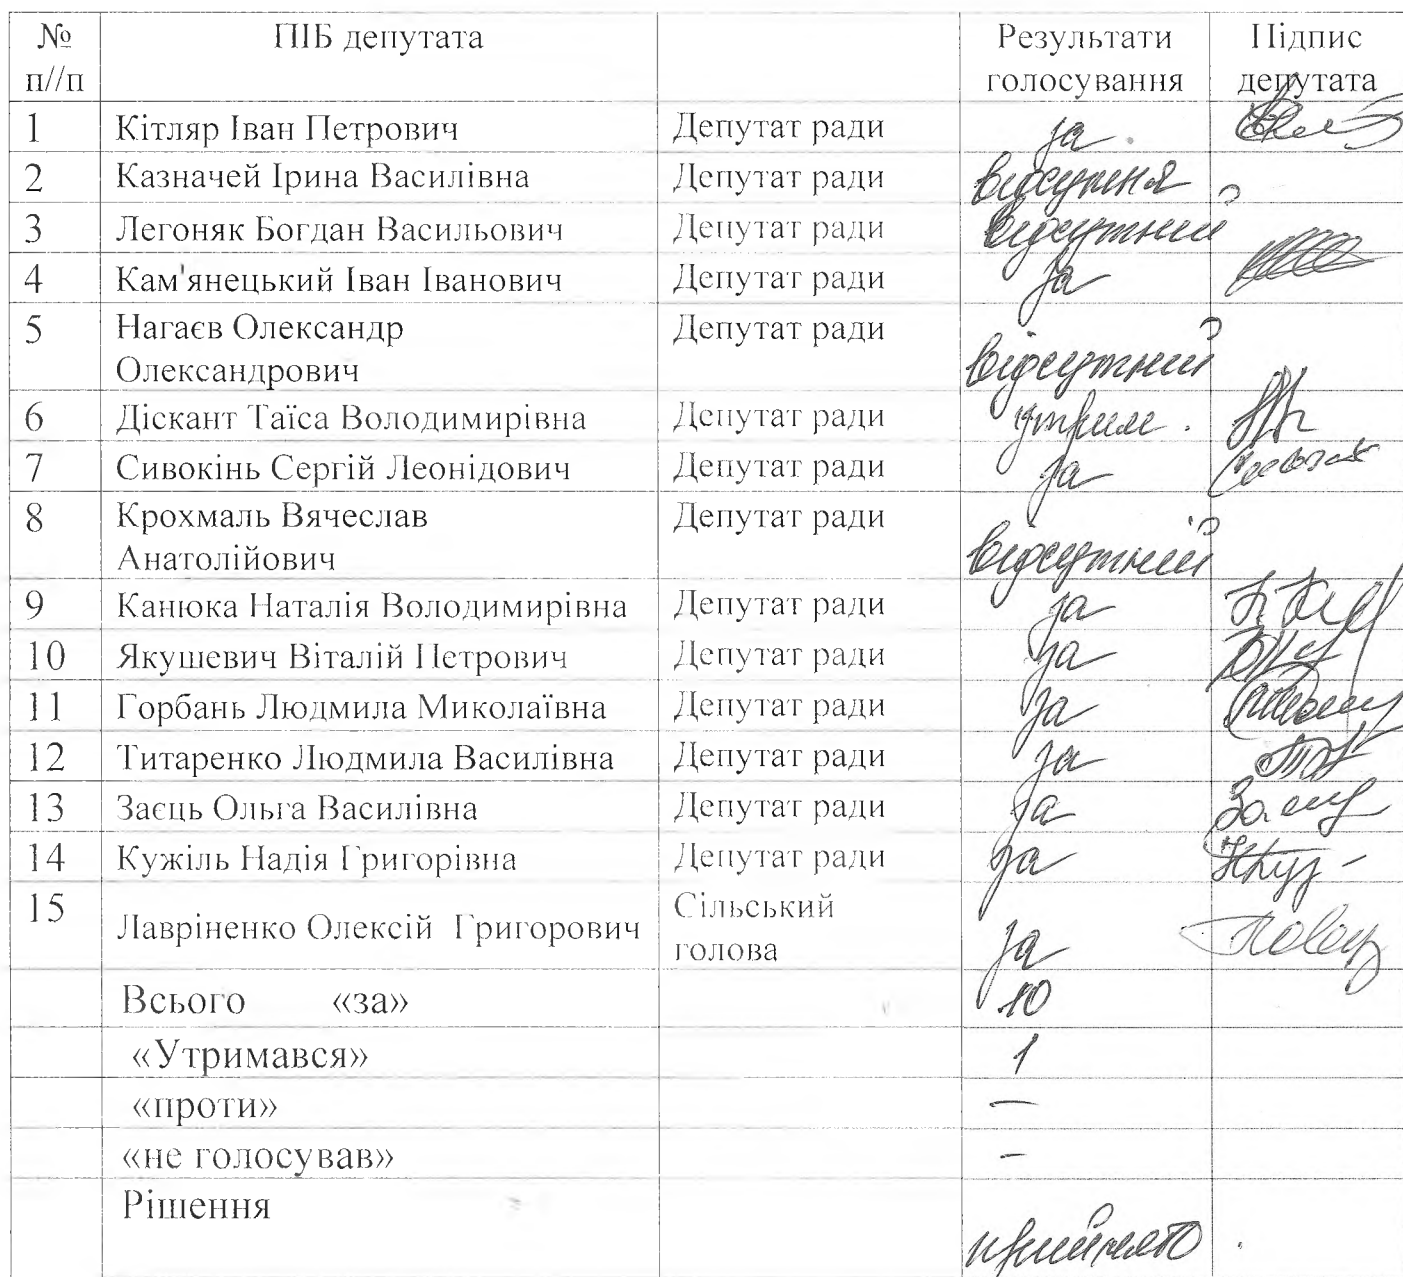 № ПІБ депутата Результати Підпис
п//п голосування депутата
1 Кітляр Іван Петрович Депутат ради за
2 Казначей Ірина Василівна Депутат ради відсутня
3 Легоняк Богдан Васильович Депутат ради відсутній
4 Кам'янецький Іван Іванович Депутат ради за
5 Нагаєв Олександр Депутат ради
Олександрович відсутний
6 Діскант Таїса Володимирівна Депутат ради утрим.
7 Сивокінь Сергій Леонідович Депутат ради за
8 Крохмаль Вячеслав Депутат ради
Анатолійович відсутний
9 Канюка Наталія Володимирівна Депутат ради за
10 Якушевич Віталій Петрович Депутат ради за
11 Горбань Людмила Миколаївна Депутат ради за
12 Титаренко Людмила Василівна Депутат ради за
13 Заєць Ольга Василівна Депутат ради за
14 Кужіль Надія Григорівна Депутат ради за
15 Сільський
Лавріненко Олексій Григорович голова за
Всього «за» 10
«Утримався» 1
«проти» –
«не голосував» –
Рішення
прийнято